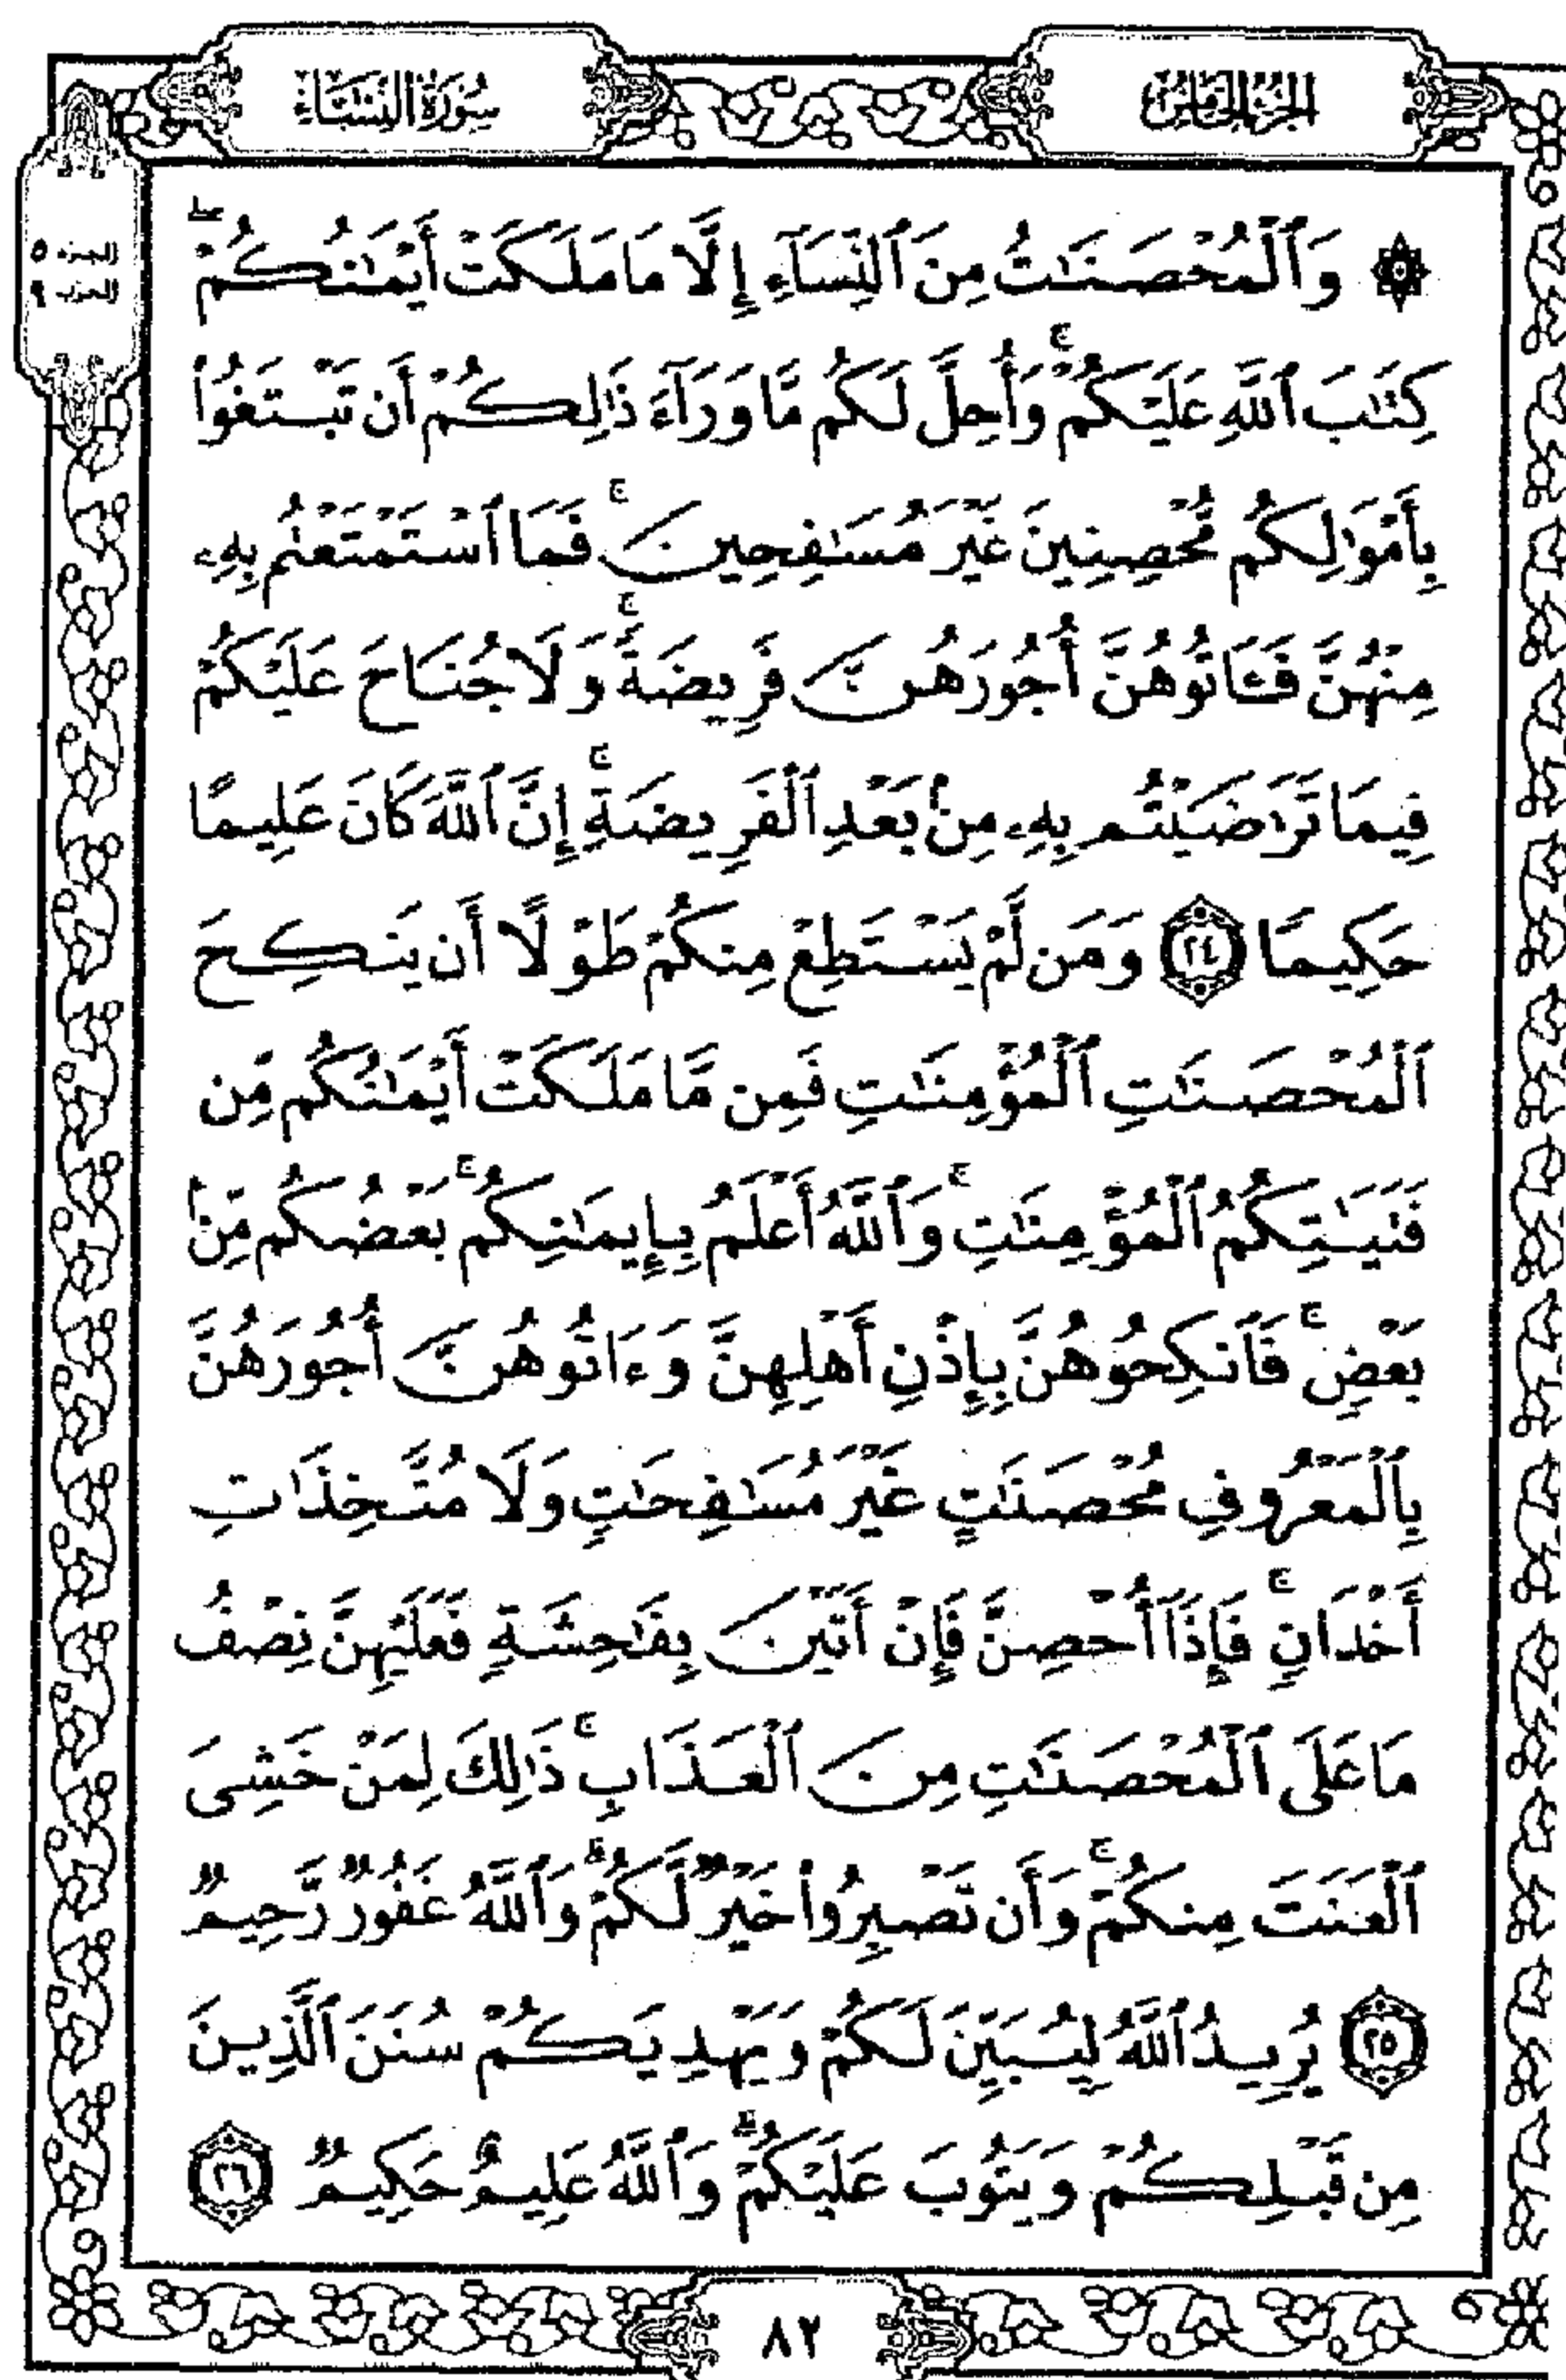 الجزء الخامس
سورة النساء
الجزء ٥
الحزب ٩
۞ وَٱلْمُحْصَنَٰتُ مِنَ ٱلنِّسَآءِ إِلَّا مَا مَلَكَتْ أَيْمَٰنُكُمْ ۖ
كِتَٰبَ ٱللَّهِ عَلَيْكُمْ ۚ وَأُحِلَّ لَكُم مَّا وَرَآءَ ذَٰلِكُمْ أَن تَبْتَغُوا۟
بِأَمْوَٰلِكُم مُّحْصِنِينَ غَيْرَ مُسَٰفِحِينَ ۚ فَمَا ٱسْتَمْتَعْتُم بِهِۦ
مِنْهُنَّ فَـَٔاتُوهُنَّ أُجُورَهُنَّ فَرِيضَةً ۚ وَلَا جُنَاحَ عَلَيْكُمْ
فِيمَا تَرَٰضَيْتُم بِهِۦ مِنۢ بَعْدِ ٱلْفَرِيضَةِ ۚ إِنَّ ٱللَّهَ كَانَ عَلِيمًا
حَكِيمًا ٢٤ وَمَن لَّمْ يَسْتَطِعْ مِنكُمْ طَوْلًا أَن يَنكِحَ
ٱلْمُحْصَنَٰتِ ٱلْمُؤْمِنَٰتِ فَمِن مَّا مَلَكَتْ أَيْمَٰنُكُم مِّن
فَتَيَٰتِكُمُ ٱلْمُؤْمِنَٰتِ ۚ وَٱللَّهُ أَعْلَمُ بِإِيمَٰنِكُم ۚ بَعْضُكُم مِّنۢ
بَعْضٍ ۚ فَٱنكِحُوهُنَّ بِإِذْنِ أَهْلِهِنَّ وَءَاتُوهُنَّ أُجُورَهُنَّ
بِٱلْمَعْرُوفِ مُحْصَنَٰتٍ غَيْرَ مُسَٰفِحَٰتٍ وَلَا مُتَّخِذَٰتِ
أَخْدَانٍ ۚ فَإِذَآ أُحْصِنَّ فَإِنْ أَتَيْنَ بِفَٰحِشَةٍ فَعَلَيْهِنَّ نِصْفُ
مَا عَلَى ٱلْمُحْصَنَٰتِ مِنَ ٱلْعَذَابِ ۚ ذَٰلِكَ لِمَنْ خَشِىَ
ٱلْعَنَتَ مِنكُمْ ۚ وَأَن تَصْبِرُوا۟ خَيْرٌ لَّكُمْ ۗ وَٱللَّهُ غَفُورٌ رَّحِيمٌ
٢٥ يُرِيدُ ٱللَّهُ لِيُبَيِّنَ لَكُمْ وَيَهْدِيَكُمْ سُنَنَ ٱلَّذِينَ
مِن قَبْلِكُمْ وَيَتُوبَ عَلَيْكُمْ ۗ وَٱللَّهُ عَلِيمٌ حَكِيمٌ ٢٦
٨٢